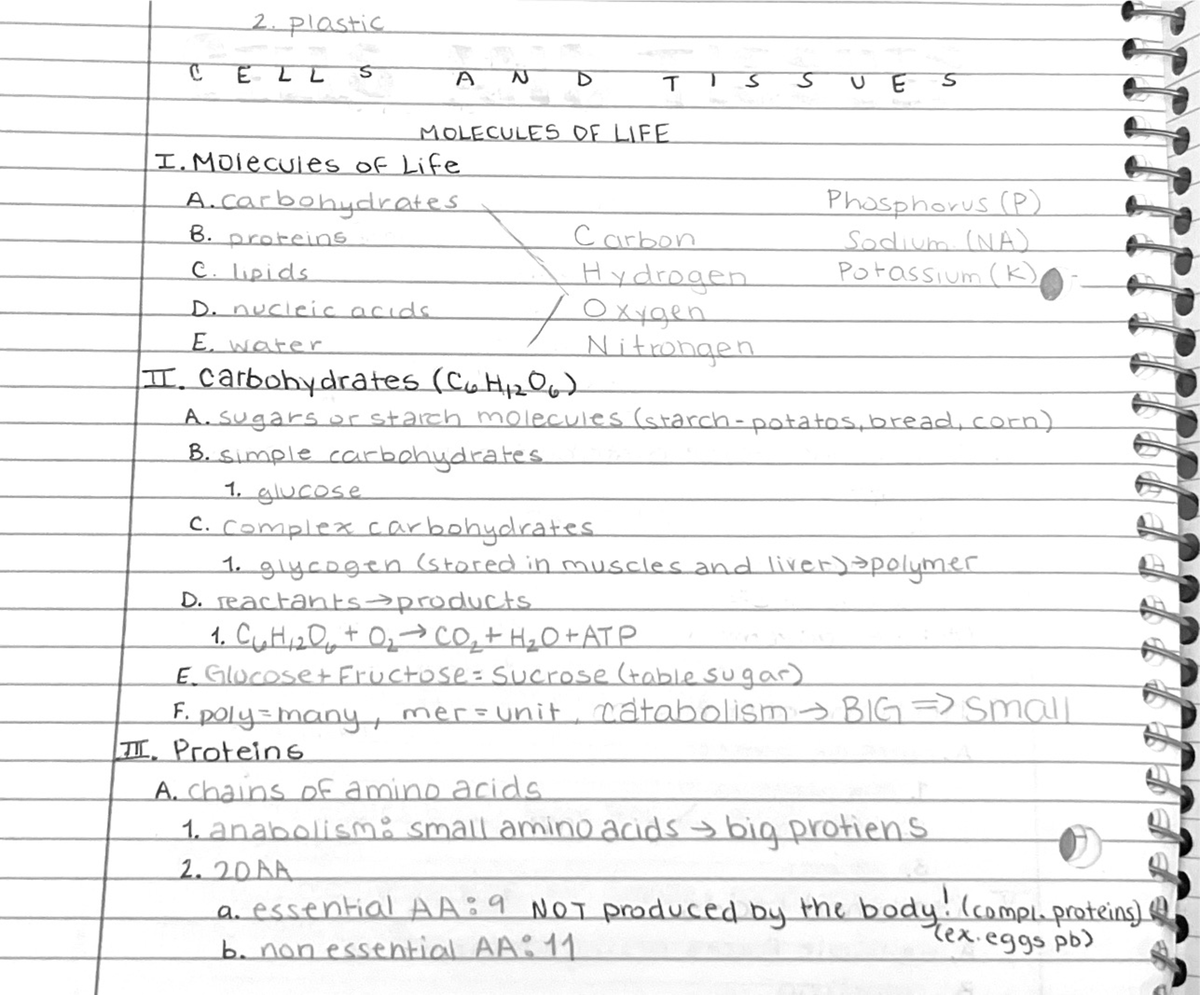 2. plastic
CELLS AND TISSUES
MOLECULES OF LIFE
I. Molecules of Life
A. carbohydrates Phosphorus (P)
B. proteins Carbon Sodium (NA)
C. lipids Hydrogen Potassium (K)
D. nucleic acids Oxygen
E. water Nitrongen
II. Carbohydrates (C₆H₁₂O₆)
A. sugars or starch molecules (starch-potatos, bread, corn)
B. simple carbohydrates
1. glucose
C. complex carbohydrates
1. glycogen (stored in muscles and liver) → polymer
D. reactants → products
1. C₆H₁₂O₆ + O₂ → CO₂ + H₂O + ATP
E. Glucose + Fructose = Sucrose (table sugar)
F. poly = many, mer = unit, catabolism → BIG => Small
III. Proteins
A. chains of amino acids
1. anabolism: small amino acids → big protiens
2. 20 AA
a. essential AA: 9 NOT produced by the body! (compl. proteins)
(ex. eggs pb)
b. non essential AA: 11